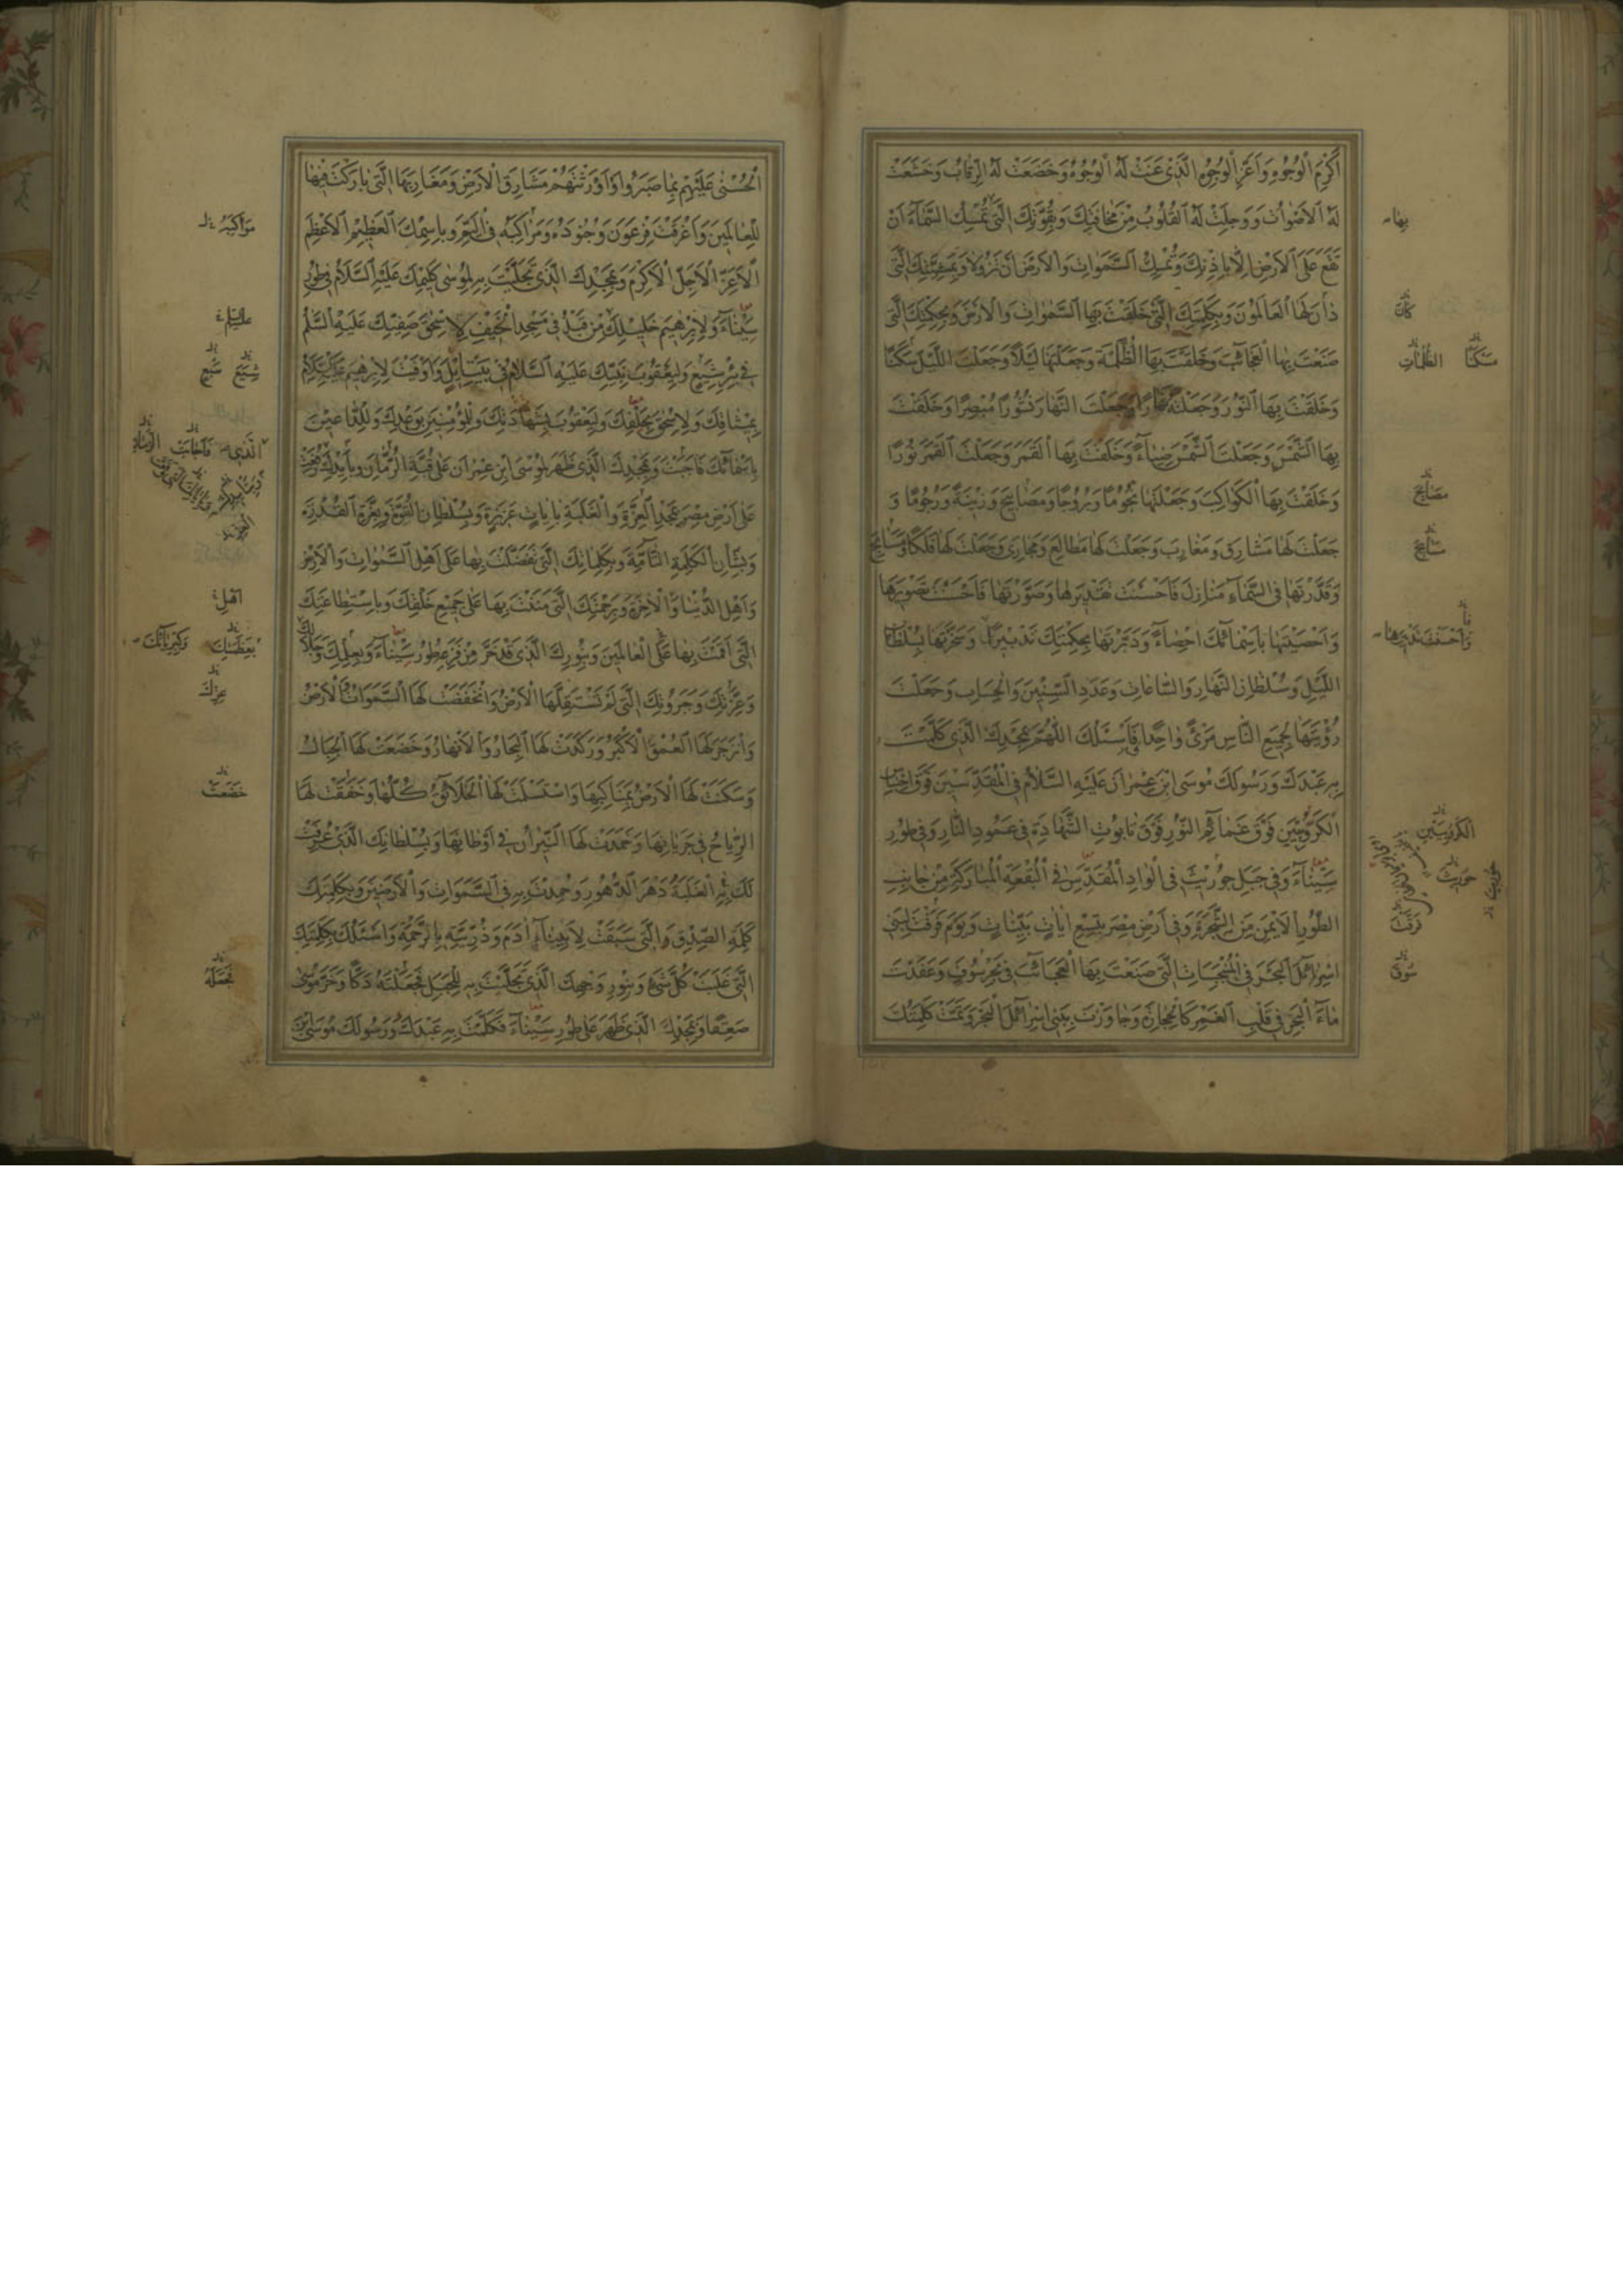 أَكْرَمِ الْوُجُوهِ وَأَعَزِّ الْوُجُوهِ الَّذِي عَنَتْ لَهُ الْوُجُوهُ وَخَضَعَتْ لَهُ الرِّقَابُ وَخَشَعَتْ
لَهُ الْأَصْوَاتُ وَوَجِلَتْ لَهُ الْقُلُوبُ مِنْ مَخَافَتِكَ وَبِقُوَّتِكَ الَّتِي تُمْسِكُ السَّمَاءَ أَنْ
تَقَعَ عَلَى الْأَرْضِ إِلَّا بِإِذْنِكَ وَتُمْسِكُ السَّمَوَاتِ وَالْأَرْضَ أَنْ تَزُولَا وَبِمَشِيَّتِكَ الَّتِي
دَانَ لَهَا الْعَالَمُونَ وَبِكَلِمَتِكَ الَّتِي خَلَقْتَ بِهَا السَّمَوَاتِ وَالْأَرْضَ وَبِحِكْمَتِكَ الَّتِي
صَنَعْتَ بِهَا الْعَجَائِبَ وَخَلَقْتَ بِهَا الظُّلْمَةَ وَجَعَلْتَهَا لَيْلًا وَجَعَلْتَ اللَّيْلَ سَكَنًا
وَخَلَقْتَ بِهَا النُّورَ وَجَعَلْتَهُ نَهَارًا وَجَعَلْتَ النَّهَارَ نُشُورًا مُبْصِرًا وَخَلَقْتَ
بِهَا الشَّمْسَ وَجَعَلْتَ الشَّمْسَ ضِيَاءً وَخَلَقْتَ بِهَا الْقَمَرَ وَجَعَلْتَ الْقَمَرَ نُورًا
وَخَلَقْتَ بِهَا الْكَوَاكِبَ وَجَعَلْتَهَا نُجُومًا وَبُرُوجًا وَمَصَابِيحَ وَزِينَةً وَرُجُومًا وَ
جَعَلْتَ لَهَا مَشَارِقَ وَمَغَارِبَ وَجَعَلْتَ لَهَا مَطَالِعَ وَمَجَارِيَ وَجَعَلْتَ لَهَا فَلَكًا وَمَسَابِحَ
وَقَدَّرْتَهَا فِي السَّمَاءِ مَنَازِلَ فَأَحْسَنْتَ تَقْدِيرَهَا وَصَوَّرْتَهَا فَأَحْسَنْتَ تَصْوِيرَهَا
وَأَحْصَيْتَهَا بِأَسْمَائِكَ إِحْصَاءً وَدَبَّرْتَهَا بِحِكْمَتِكَ تَدْبِيرًا وَسَخَّرْتَهَا بِسُلْطَانِ
اللَّيْلِ وَسُلْطَانِ النَّهَارِ وَالسَّاعَاتِ وَعَدَدِ السِّنِينَ وَالْحِسَابِ وَجَعَلْتَ
رُؤْيَتَهَا لِجَمِيعِ النَّاسِ مَرْئً وَاحِدًا فَأَسْئَلُكَ اللَّهُمَّ بِمَجْدِكَ الَّذِي كَلَّمْتَ
بِهِ عَبْدَكَ وَرَسُولَكَ مُوسَى ابْنَ عِمْرَانَ عَلَيْهِ السَّلَامُ فِي الْمُقَدَّسِينَ فَوْقَ إِحْسَاسِ
الْكَرُّوبِيِّينَ فَوْقَ غَمَائِمِ النُّورِ فَوْقَ تَابُوتِ الشَّهَادَةِ فِي عَمُودِ النَّارِ وَفِي طُورِ
سَيْنَاءَ وَفِي جَبَلِ حُورِيثَ فِي الْوَادِ الْمُقَدَّسِ فِي الْبُقْعَةِ الْمُبَارَكَةِ مِنْ جَانِبِ
الطُّورِ الْأَيْمَنِ مِنَ الشَّجَرَةِ وَفِي أَرْضِ مِصْرَ بِتِسْعِ آيَاتٍ بَيِّنَاتٍ وَيَوْمَ فَرَقْتَ لِبَنِي
إِسْرَائِيلَ الْبَحْرَ وَفِي الْمُنْبَجِسَاتِ الَّتِي صَنَعْتَ بِهَا الْعَجَائِبَ فِي بَحْرِ سُوفٍ وَعَقَدْتَ
مَاءَ الْبَحْرِ فِي قَلْبِ الْغَمْرِ كَالْحِجَارَةِ وَجَاوَزْتَ بِبَنِي إِسْرَائِيلَ الْبَحْرَ وَتَمَّتْ كَلِمَتُكَ
بها
كان
سكنًا الظلمات
مصابيح
سابح
الكروبيين
حوريث
فرقت
سوف
الْحُسْنَى عَلَيْهِمْ بِمَا صَبَرُوا وَأَوْرَثْتَهُمْ مَشَارِقَ الْأَرْضِ وَمَغَارِبَهَا الَّتِي بَارَكْتَ فِيهَا
لِلْعَالَمِينَ وَأَغْرَقْتَ فِرْعَوْنَ وَجُنُودَهُ وَمَرَاكِبَهُ فِي الْيَمِّ وَبِاسْمِكَ الْعَظِيمِ الْأَعْظَمِ
الْأَعَزِّ الْأَجَلِّ الْأَكْرَمِ وَبِمَجْدِكَ الَّذِي تَجَلَّيْتَ بِهِ لِمُوسَى كَلِيمِكَ عَلَيْهِ السَّلَامُ فِي طُورِ
سَيْنَاءَ وَلِإِبْرَهِيمَ خَلِيلِكَ مِنْ قَبْلُ فِي مَسْجِدِ الْخَيْفِ وَلِإِسْحَقَ صَفِيِّكَ عَلَيْهِ السَّلَمُ
فِي بِئْرِ شِيَعٍ وَلِيَعْقُوبَ نَبِيِّكَ عَلَيْهِ السَّلَامُ فِي بَيْتِ إِيلٍ وَأَوْفَيْتَ لِإِبْرَهِيمَ عَلَيْهِ السَّلَامُ
بِمِيثَاقِكَ وَلِإِسْحَقَ بِحَلْفِكَ وَلِيَعْقُوبَ بِشَهَادَتِكَ وَلِلْمُؤْمِنِينَ بِوَعْدِكَ وَلِلدَّاعِينَ
بِأَسْمَائِكَ فَأَجَبْتَ وَبِمَجْدِكَ الَّذِي ظَهَرَ لِمُوسَى ابْنِ عِمْرَانَ عَلَى قُبَّةِ الرُّمَّانِ
عَلَى أَرْضِ مِصْرَ بِمَجْدِ الْعِزَّةِ وَالْغَلَبَةِ بِآيَاتٍ عَزِيزَةٍ وَبِسُلْطَانِ الْقُوَّةِ وَبِعِزَّةِ الْقُدْرَةِ
وَبِشَأْنِ الْكَلِمَةِ التَّامَّةِ وَبِكَلِمَاتِكَ الَّتِي تَفَضَّلْتَ بِهَا عَلَى أَهْلِ السَّمَوَاتِ وَالْأَرْضِ
وَأَهْلِ الدُّنْيَا وَالْآخِرَةِ وَبِرَحْمَتِكَ الَّتِي مَنَنْتَ بِهَا عَلَى جَمِيعِ خَلْقِكَ وَبِاسْتِطَاعَتِكَ
الَّتِي أَقَمْتَ بِهَا عَلَى الْعَالَمِينَ وَبِنُورِكَ الَّذِي قَدْ خَرَّ مِنْ فَزَعِهِ طُورُ سَيْنَاءَ وَبِعِلْمِكَ وَجَلَالِكَ
وَعِزَّتِكَ وَجَبَرُوتِكَ الَّتِي لَمْ تَسْتَقِلَّهَا الْأَرْضُ وَانْخَفَضَتْ لَهَا السَّمَوَاتُ وَالْأَرْضُ
وَانْزَجَرَ لَهَا الْعُمْقُ الْأَكْبَرُ وَرَكَدَتْ لَهَا الْبِحَارُ وَالْأَنْهَارُ وَخَضَعَتْ لَهَا الْجِبَالُ
وَسَكَنَتْ لَهَا الْأَرْضُ بِمَنَاكِبِهَا وَاسْتَسْلَمَتْ لَهَا الْخَلَائِقُ كُلُّهَا وَخَفَقَتْ لَهَا
الرِّيَاحُ فِي جَرَيَانِهَا وَخَمَدَتْ لَهَا النِّيرَانُ فِي أَوْطَانِهَا وَبِسُلْطَانِكَ الَّذِي عُرِفَتْ
لَكَ بِهِ الْغَلَبَةُ دَهْرَ الدُّهُورِ وَحُمِدْتَ بِهِ فِي السَّمَوَاتِ وَالْأَرَضِينَ وَبِكَلِمَتِكَ
كَلِمَةِ الصِّدْقِ وَالَّتِي سَبَقَتْ لِأَبِينَا آدَمَ وَذُرِّيَّتِهِ بِالرَّحْمَةِ وَأَسْئَلُكَ بِكَلِمَتِكَ
الَّتِي غَلَبَتْ كُلَّ شَيْءٍ وَبِنُورِ وَجْهِكَ الَّذِي تَجَلَّيْتَ بِهِ لِلْجَبَلِ فَجَعَلْتَهُ دَكًّا وَخَرَّ مُوسَى
صَعِقًا وَبِمَجْدِكَ الَّذِي ظَهَرَ عَلَى طُورِ سَيْنَاءَ فَكَلَّمْتَ بِهِ عَبْدَكَ وَرَسُولَكَ مُوسَى بْنَ
مراكبه
عليه السلم
شيع سبع
اهل
بعظمتك وكبريائك
عزتك
خضعت
فجعله